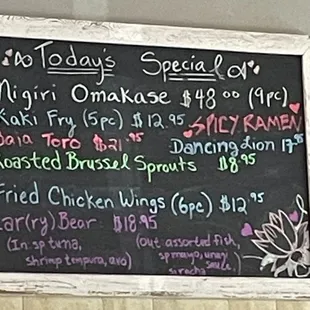 Today's Special
Nigiri Omakase $48.00 (9pc)
Kaki Fry (5pc) $12.95 SPICY RAMEN
Toro $21.95 Dancing Lion 17.95
Roasted Brussel Sprouts $8.95
Fried Chicken Wings (6pc) $12.95
ar(ry) Bear $18.95
(In: sp tuna, (out: assorted fish,
shrimp tempura, avo) sp mayo, unagi
sauce,
siracha